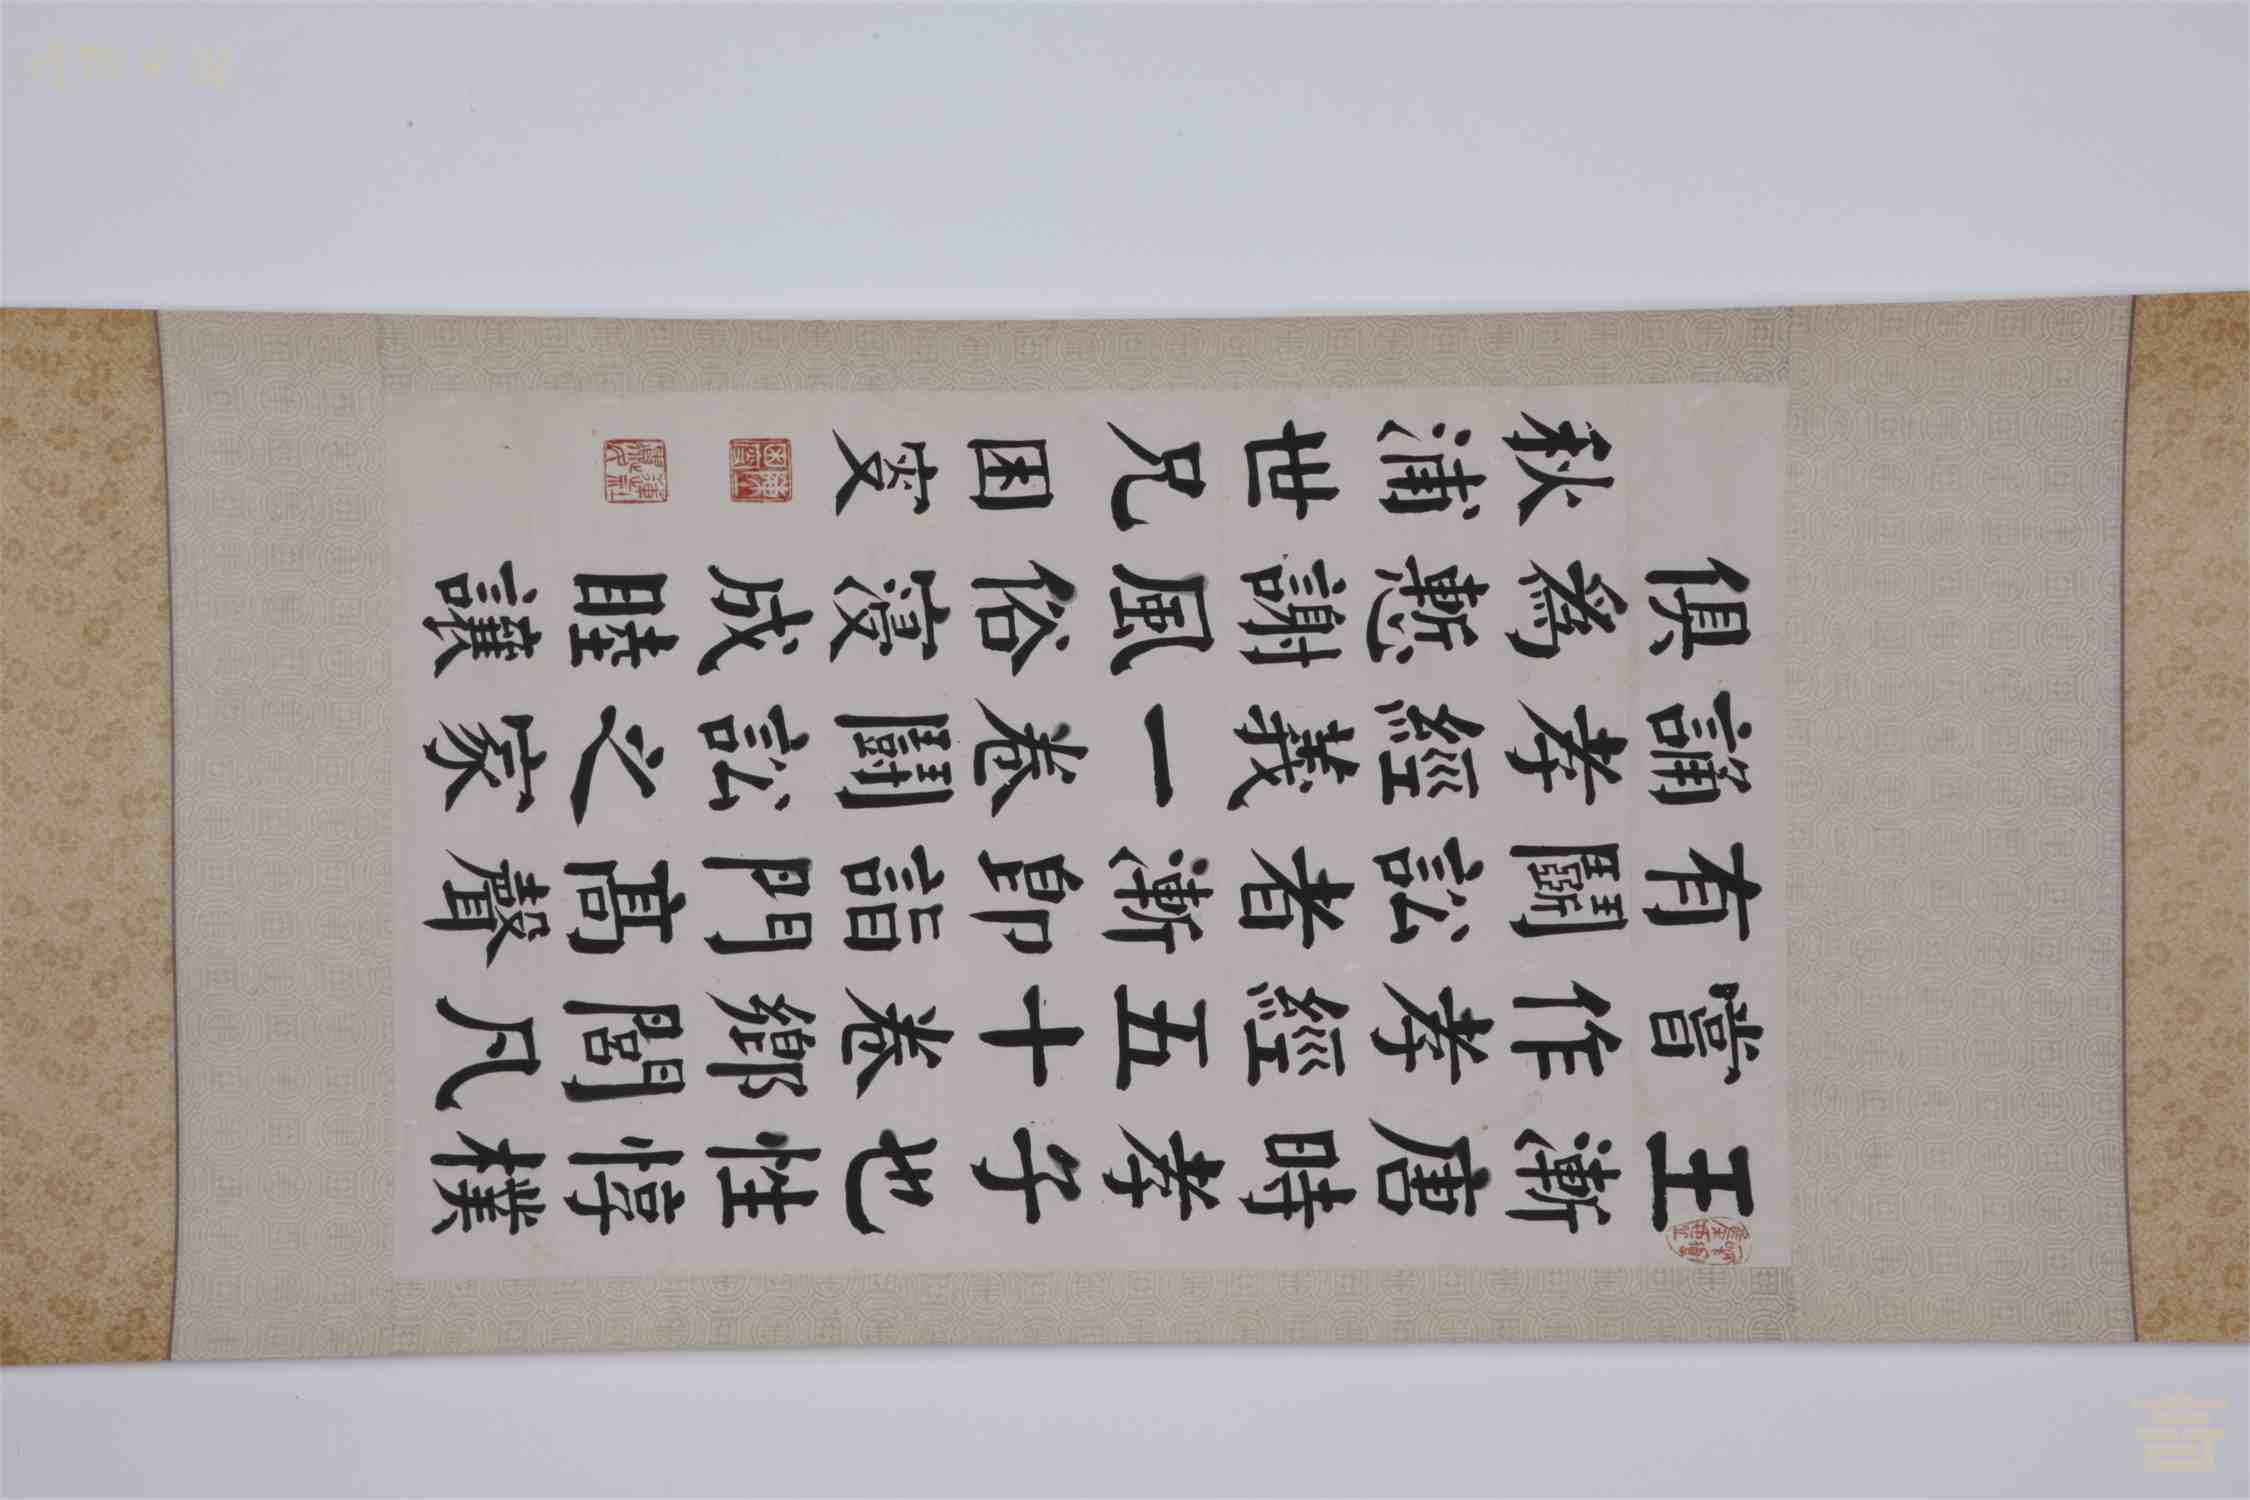 王漸唐時孝子也性惇樸
嘗作孝經五十卷鄉閭凡
有鬬訟者漸即詣門高聲
誦孝經義一卷鬬訟之家
俱為慙謝風俗寖成睦讓
秋浦世兄 困叟